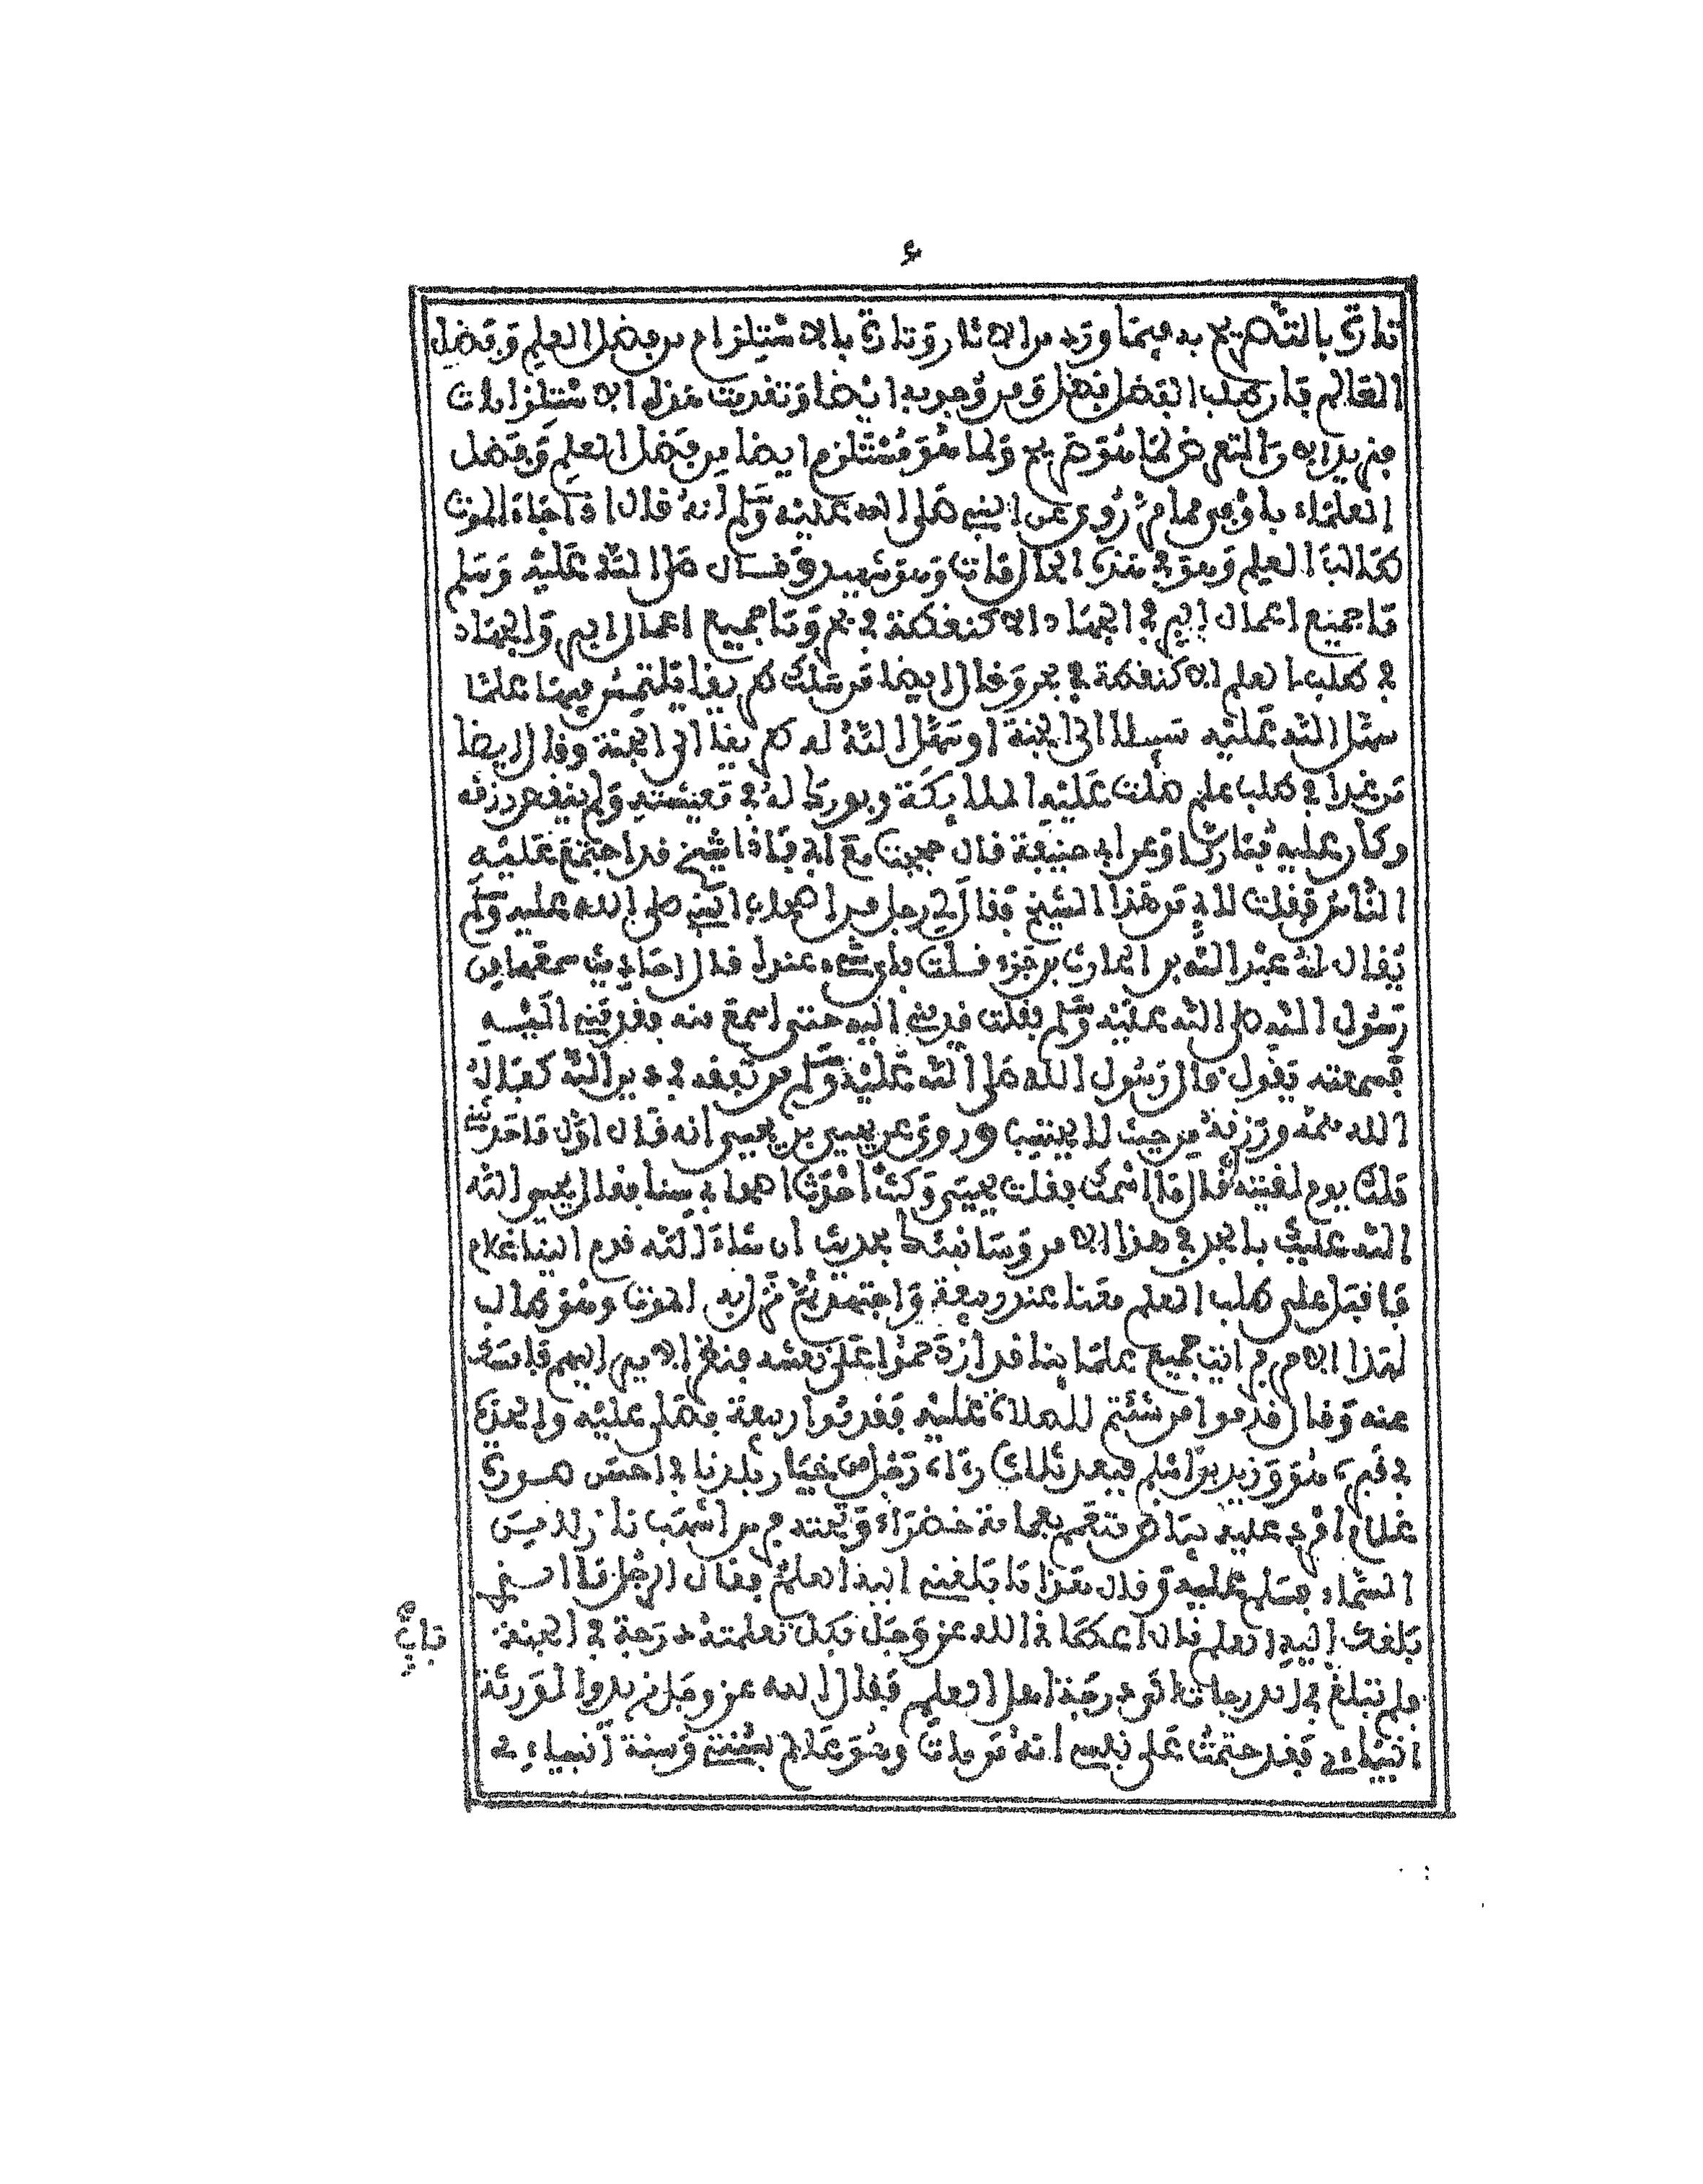 ٤
تارة بالتصريح به فيما ورد من الاثار وتارة بالاستلزام من فضل العلم وفضل
العالم فان طلب الفضل فضل ومرغوب به ايضا وتقدمت هذه الاستلزامات
والتعرض لما هو صريح ولما هو مستلزم ايضا من فضل العلم وفضل
العلماء روي عن النبي صلى الله عليه وسلم أنه قال اذا جاء الموت
طالب العلم وهو في هذه الحال مات وهو شهيد وقال صلى الله عليه وسلم
ما جميع اعمال البر في الجهاد الا كنفطة في بحر وما جميع اعمال البر والجهاد
في طلب العلم الا كنفطة في بحر وقال ايضا من سلك طريقا يلتمس فيها علما
سهل الله عليه سبيلا الى الجنة او سهل الله له طريقا الى الجنة وقال ايضا
من غدا في طلب علم صلت عليه الملايكة وبورك له في معيشته ولم ينقص من رزقه
وكان عليه مباركا وعن ابي حنيفة قال حججت مع ابي فاذا شيخ قد اجتمع عليه
الناس فقلت لابي من هذا الشيخ فقال لي رجل من اصحاب النبي صلى الله عليه وسلم
يقال له عبد الله بن الحارث بن جزء قلت باي شيء عنده قال احاديث سمعها من
رسول الله صلى الله عليه وسلم فقلت قدمني اليه حتى اسمع منه فقدمني اليه
فسمعته يقول قال رسول الله صلى الله عليه وسلم من تفقه في دين الله كفاه
الله همه ورزقه من حيث لا يحتسب وروي عن يحيى بن يحيى أنه قال اول ما حدثني
ملك يوم لقيته قال ما اسمك فقلت يحيى وكنت احدث اصحابي سنا فقال يا يحيى الله
الله عليك بالجد في هذا الامر وسانبئك بحديث ان شاء الله قدم الينا غلام
فاقبل على طلب العلم معنا عند ربيعة واجتهد ثم نزل به الموت وهو طالب
لهذا الامر فرايت جميع علماينا قد ازدحموا على نعشه فنظر الامير اليهم فامسك
عنه وقال قدموا من شئتم للصلاة عليه فقدموا ربيعة فصلى عليه ولحده
في قبره هو وزيد بن اسلم فبعد ثلاث رءاه رجل من خيار بلدنا في احسن صورة
غلام امرد عليه بياض متعمم بعمامة خضراء وتحته فرس اشهب نازلا من
السماء فسلم عليه وقال هذا ما بلغني اليه العلم فقال الرجل ما الذي
بلغك اليه العلم فقال اعطاني الله عز وجل بكل باب تعلمته درجة في الجنة
فلم تبلغ بي الدرجات الى درجة اهل العلم فقال الله عز وجل زيدوا لورثة
انبياءي فقد حتمت على نفسي انه من مات وهو عالم بسنتي وسنة أنبياءي
باب